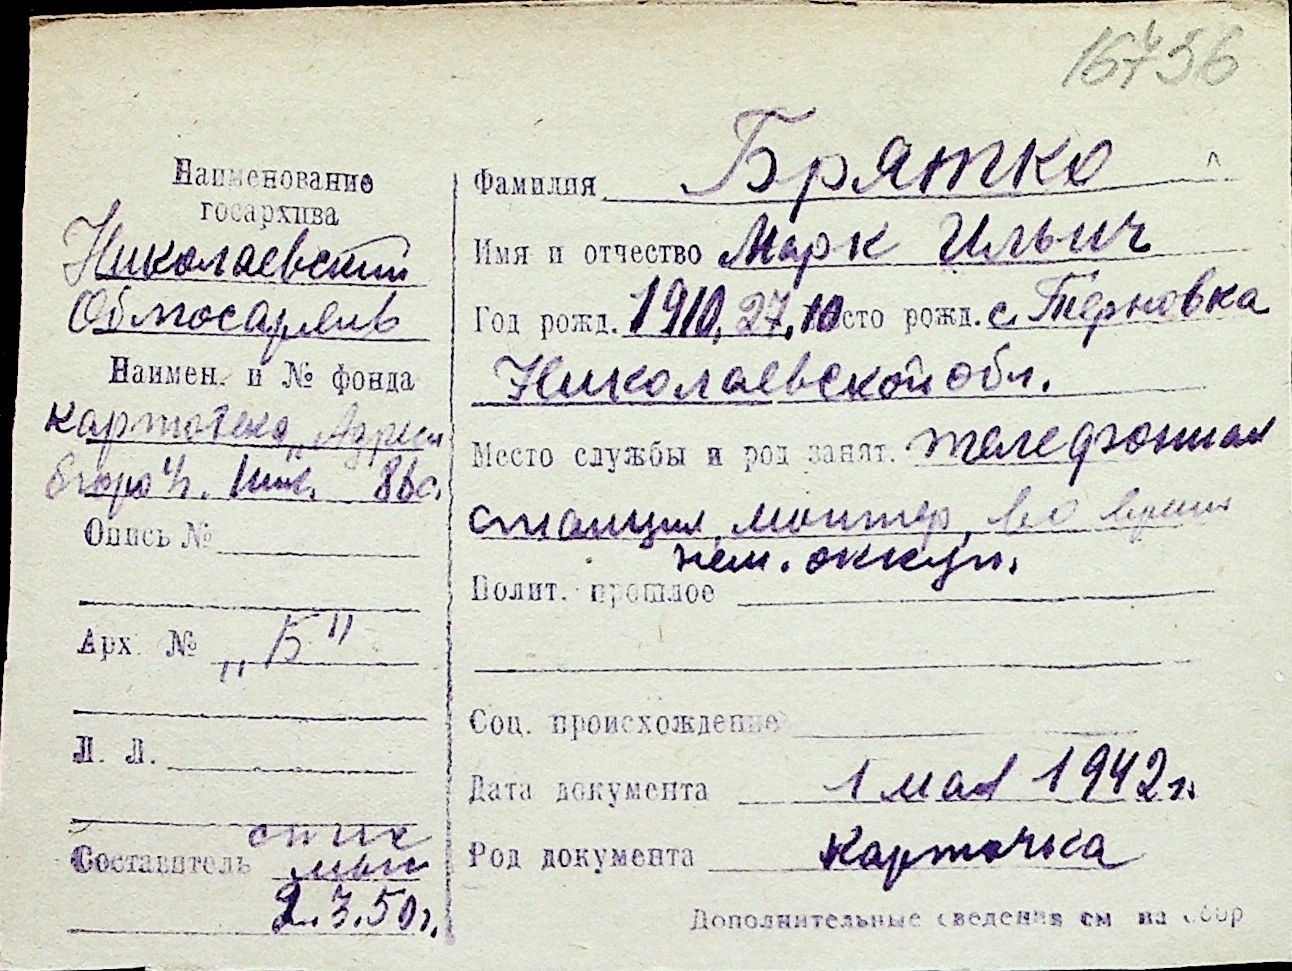 16456
Наименование
госархива
Николаевский
Облгосархив
Наимен. и № фонда
картотека „Адресн
бюро" г. Ник. 86 с.
Опись №
Арх. № „Б"
Л. Л.
Составитель
2.3.50 г.
Фамилия Брятко
Имя и отчество Марк Ильич
Год рожд. 1910, 27.10 сто рожд. с. Терновка
Николаевской обл.
Место службы и род занят. телефонная
станция, монтер, во время
нем. оккуп.
Полит. прошлое
Соц. происхождение
Дата документа 1 мая 1942 г.
Род документа карточка
Дополнительные сведения см на обор